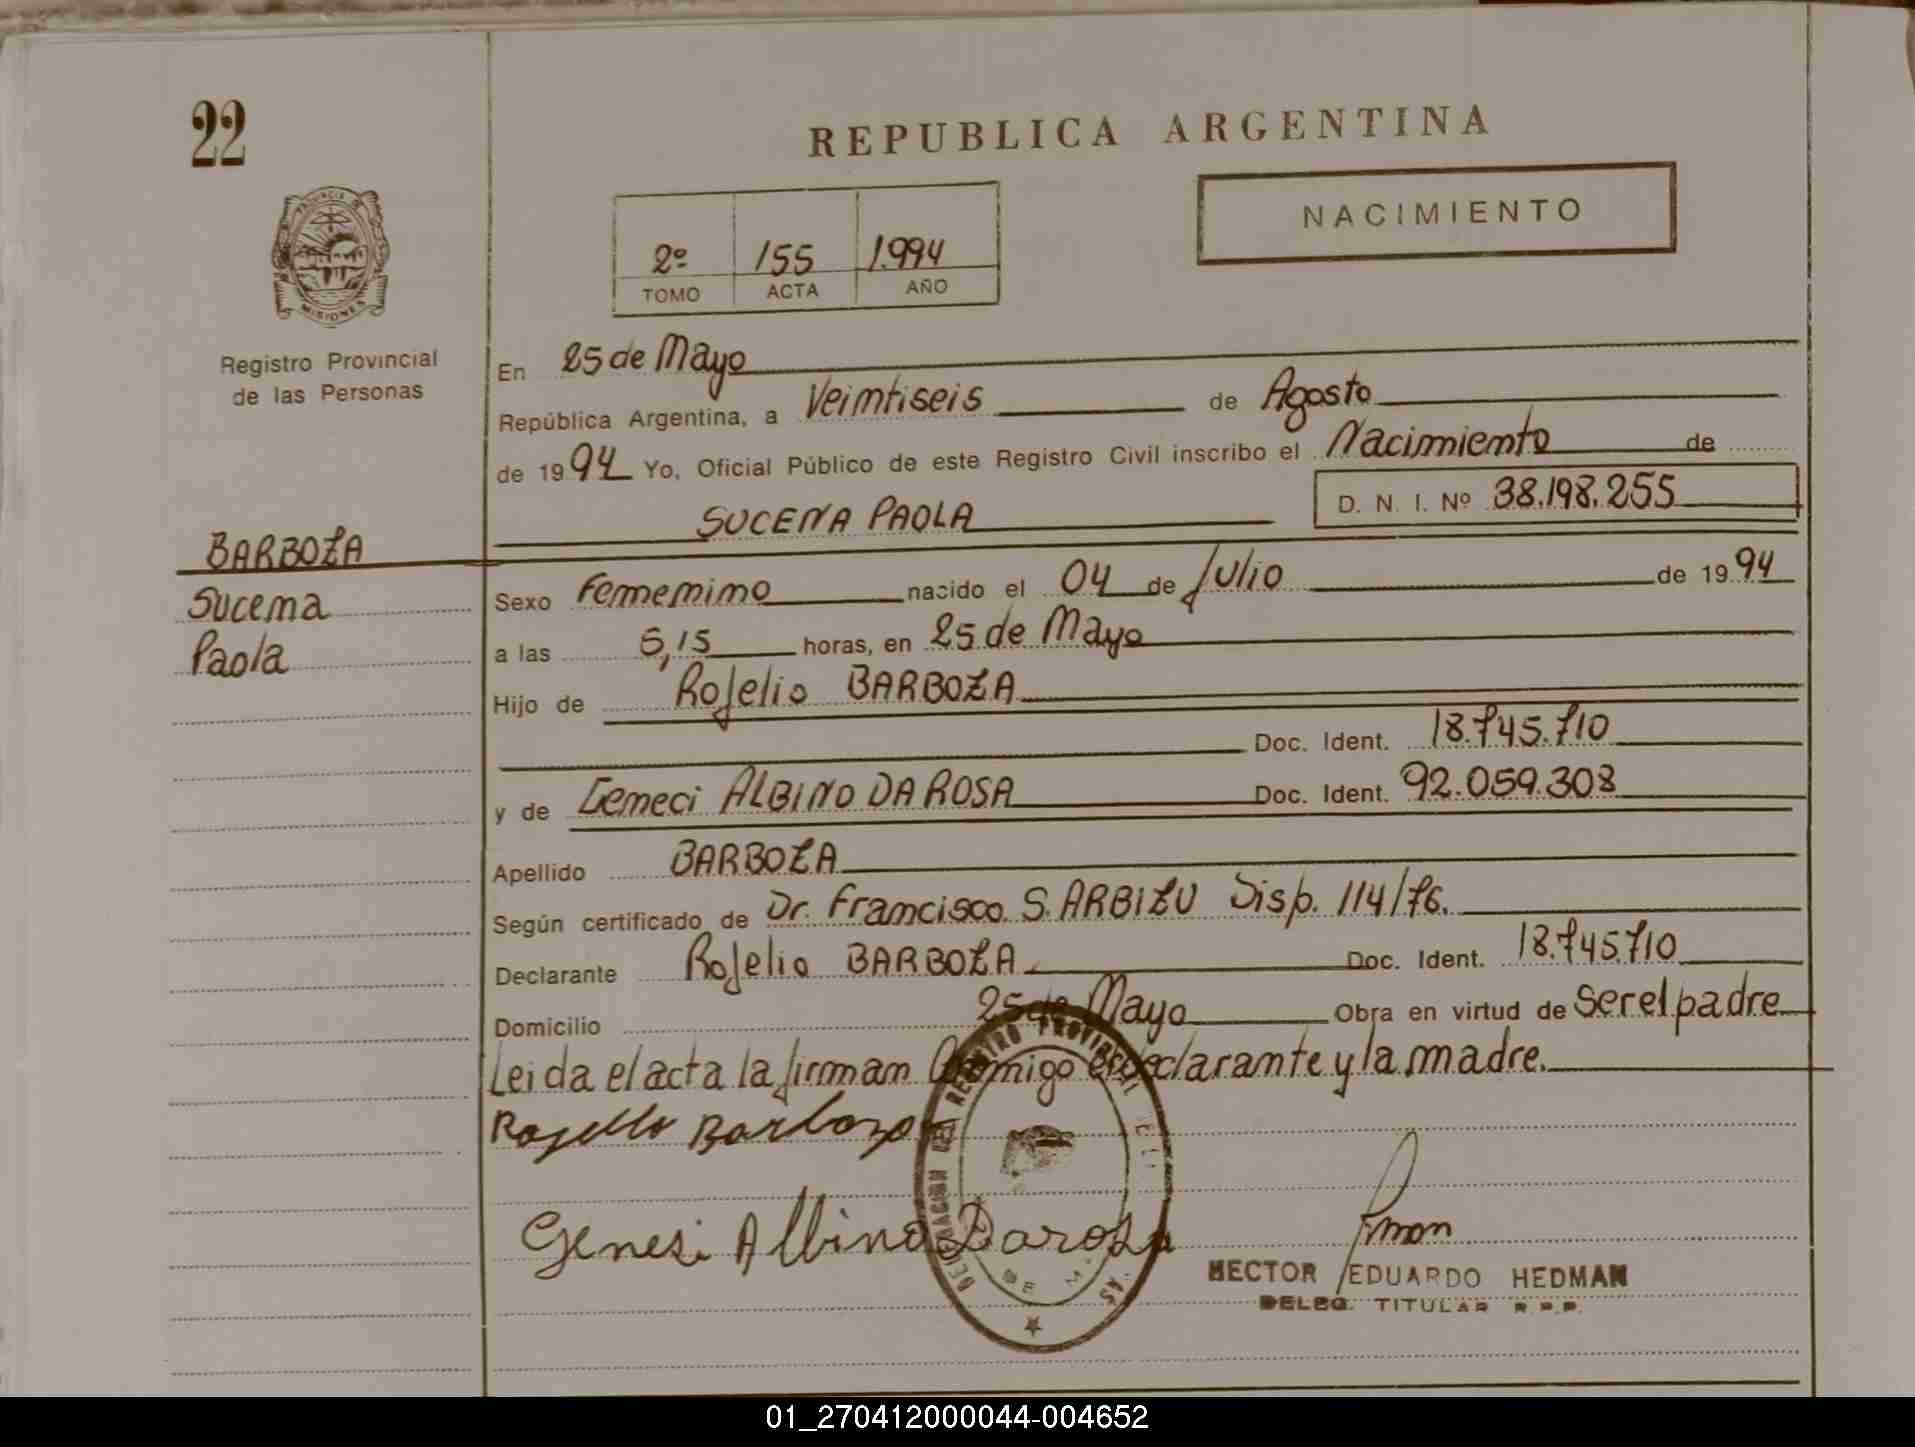 22
REPUBLICA ARGENTINA
NACIMIENTO
2º 155 1.994
TOMO ACTA AÑO
PROVINCIA DE
MISIONES
Registro Provincial
de las Personas
En 25 de Mayo
República Argentina, a Veintiseis de Agosto
de 1994 Yo, Oficial Público de este Registro Civil inscribo el Nacimiento de
D. N. I. Nº 38.198.255
SUCENA PAOLA
BARBOZA
Sucena
Paola
Sexo Femenino nacido el 04 de Julio de 1994
a las 6,15 horas, en 25 de Mayo
Hijo de Rojelio BARBOZA
Doc. Ident. 18.745.710
y de ALBINO DA ROSA Doc. Ident. 92.059.308
Apellido BARBOZA
Según certificado de Dr. Francisco S. ARBIZU Disp. 114/76.
Declarante Rojelio BARBOZA Doc. Ident. 18.745.710
Domicilio 25 de Mayo Obra en virtud de ser el padre
Leida el acta la firman Conmigo el declarante y la madre.
Rojelio Barboza
Genesi Albino Darosa
HECTOR EDUARDO HEDMAN
DELEG. TITULAR R.P.P.
01_270412000044-004652